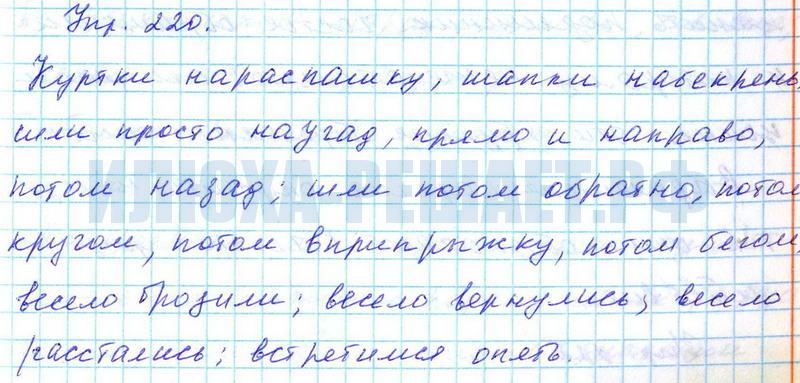 Упр. 220.
Куртки нараспашку, шапки набекрень,
шли просто наугад, прямо и направо,
потом назад; шли потом обратно, потом
кругом, потом вприпрыжку, потом бегом,
весело бродили; весело вернулись, весело
расстались; встретимся опять.
ИЛЮХА-РЕШАЕТ.РФ